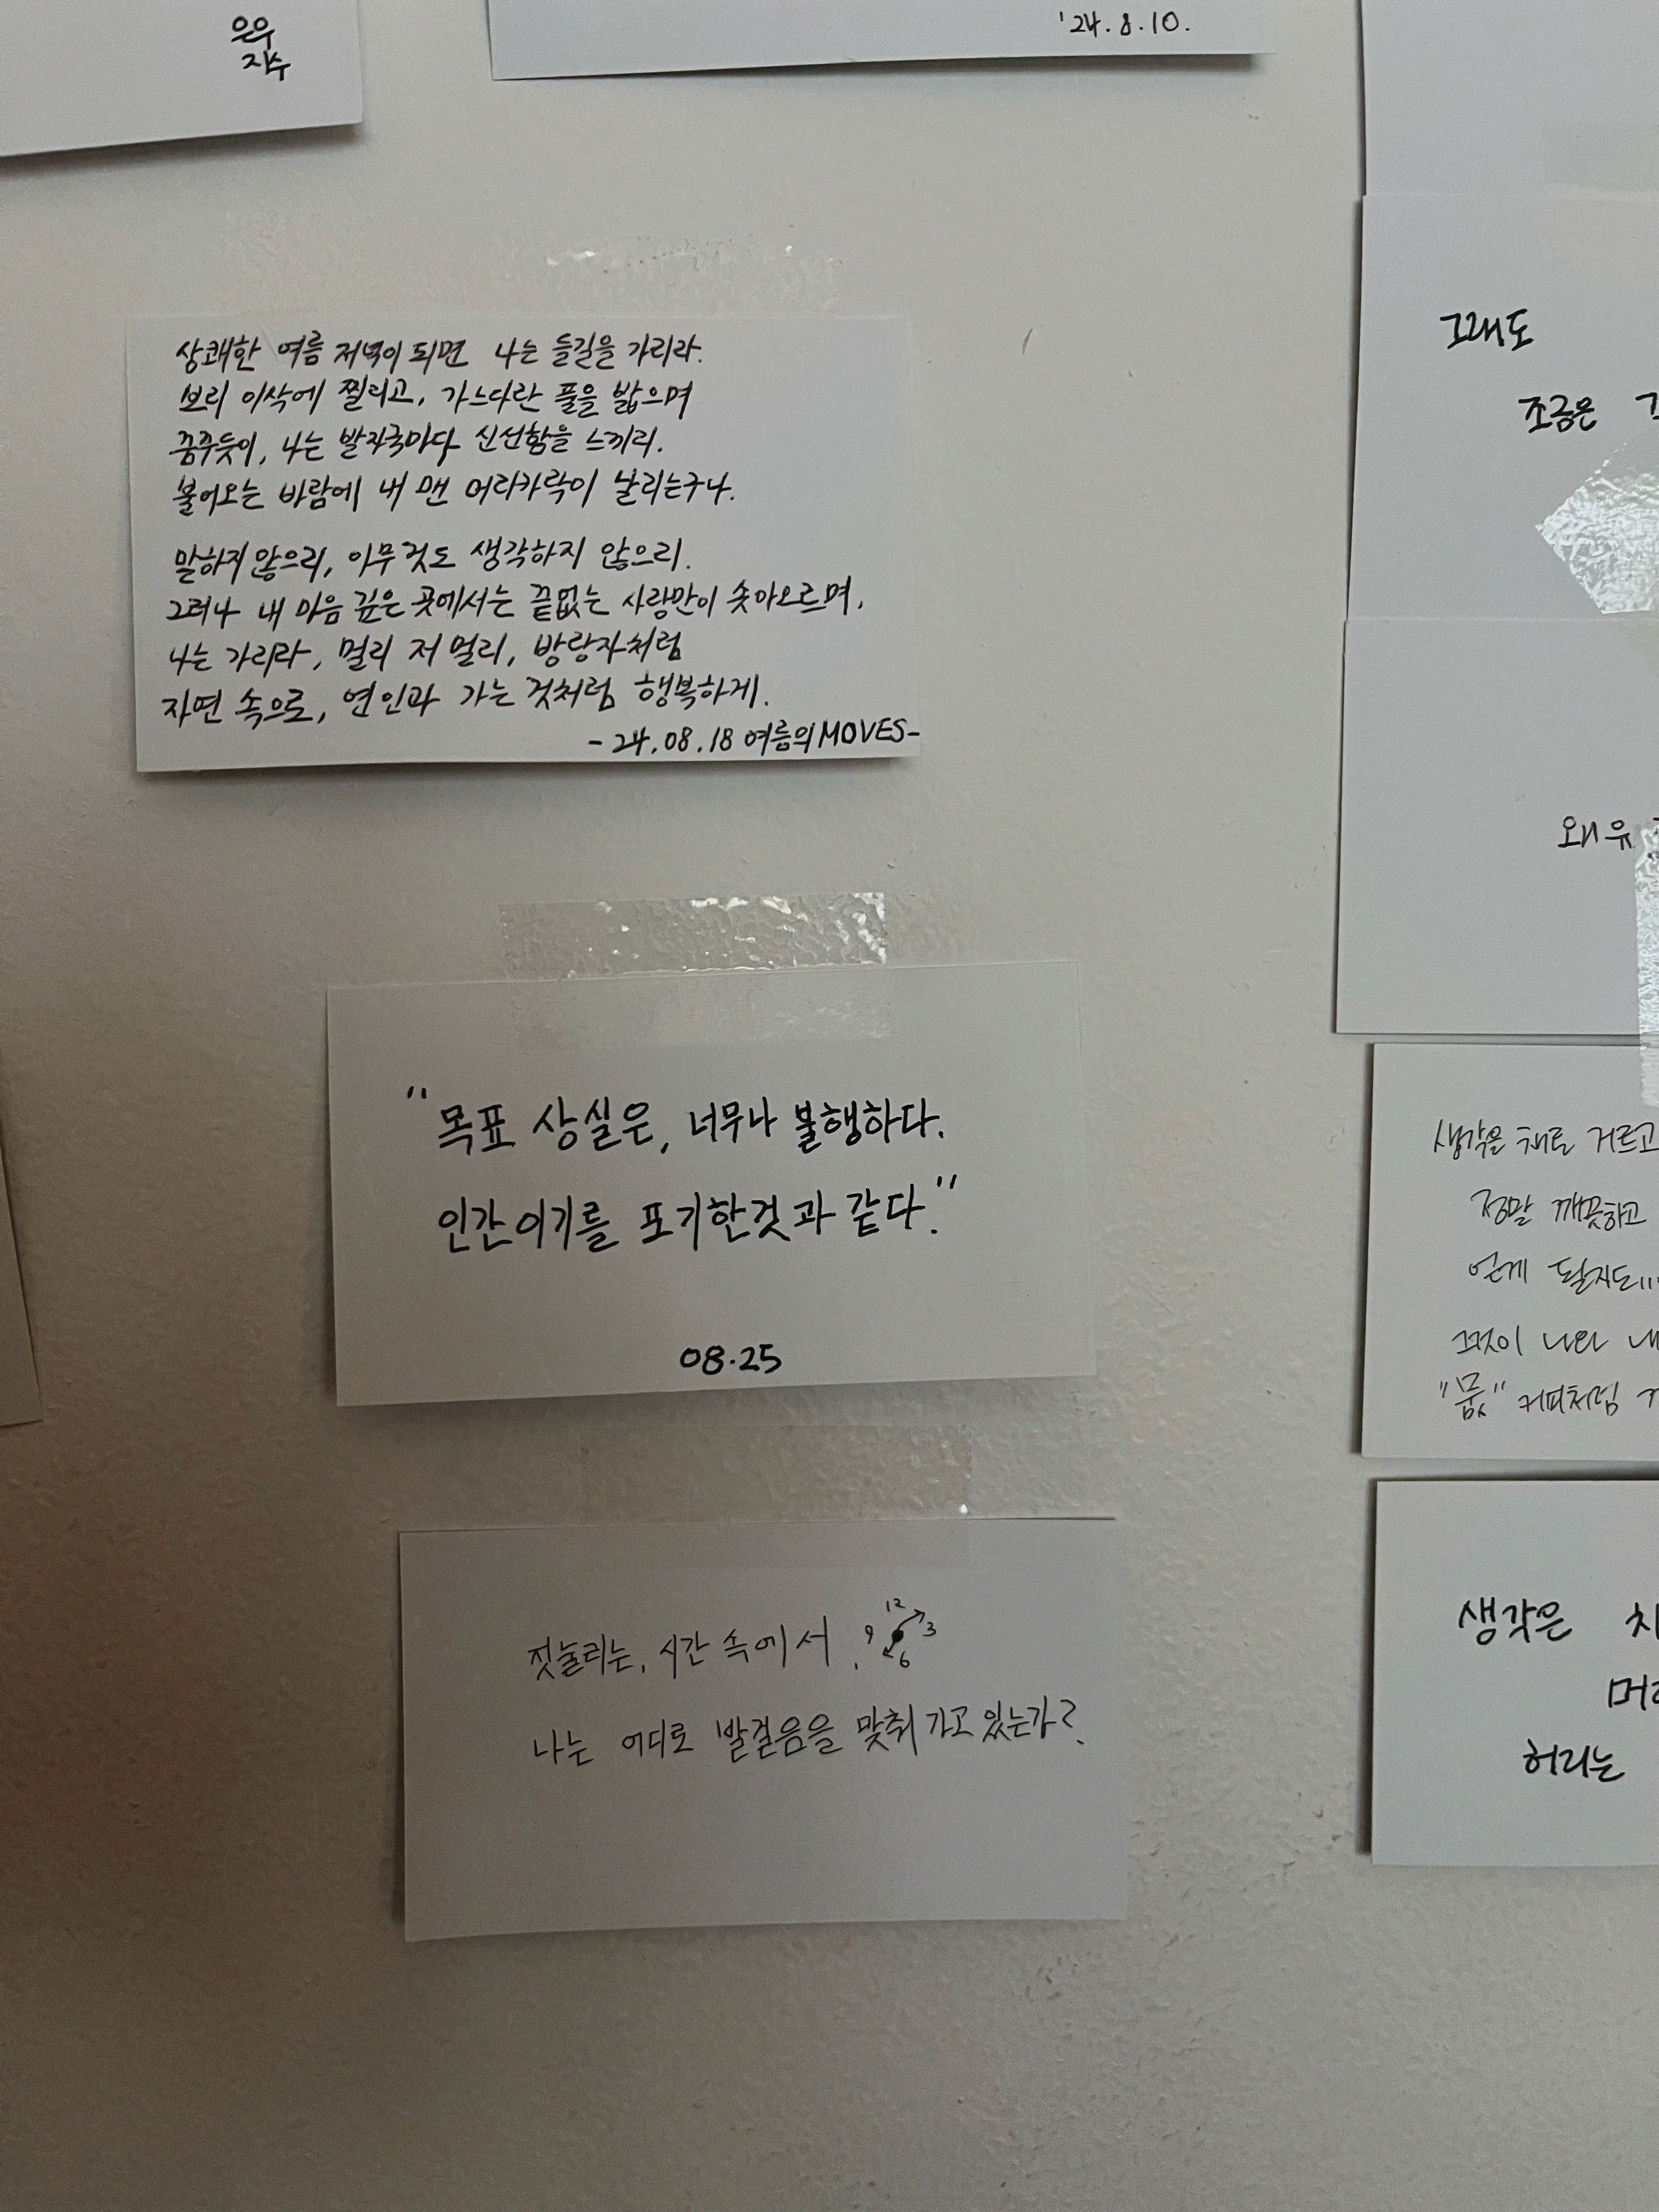 은우
지수
'24.8.10.
상쾌한 여름 저녁이 되면 나는 들길을 가리라.
보리 이삭에 찔리고, 가느다란 풀을 밟으며
꿈꾸듯이, 나는 발자국마다 신선함을 느끼리.
불어오는 바람에 내 맨 머리카락이 날리는구나.
말하지 않으리, 아무것도 생각하지 않으리.
그러나 내 마음 깊은 곳에서는 끝없는 사랑만이 솟아오르며,
나는 가리라, 멀리 저 멀리, 방랑자처럼
자연 속으로, 연인과 가는 것처럼 행복하게.
-24.08.18 여름의MOVES-
"목표 상실은, 너무나 불행하다.
인간이기를 포기한것과 같다."
08.25
짓눌리는, 시간 속에서
12
9 3
6
나는 어디로 발걸음을 맞춰 가고 있는가?
그래도
조금은
왜 유
생각을 채로 거르고
정말 깨끗하고
얻게 될지도...
그것이 나와
커피처럼
생각은
허리는